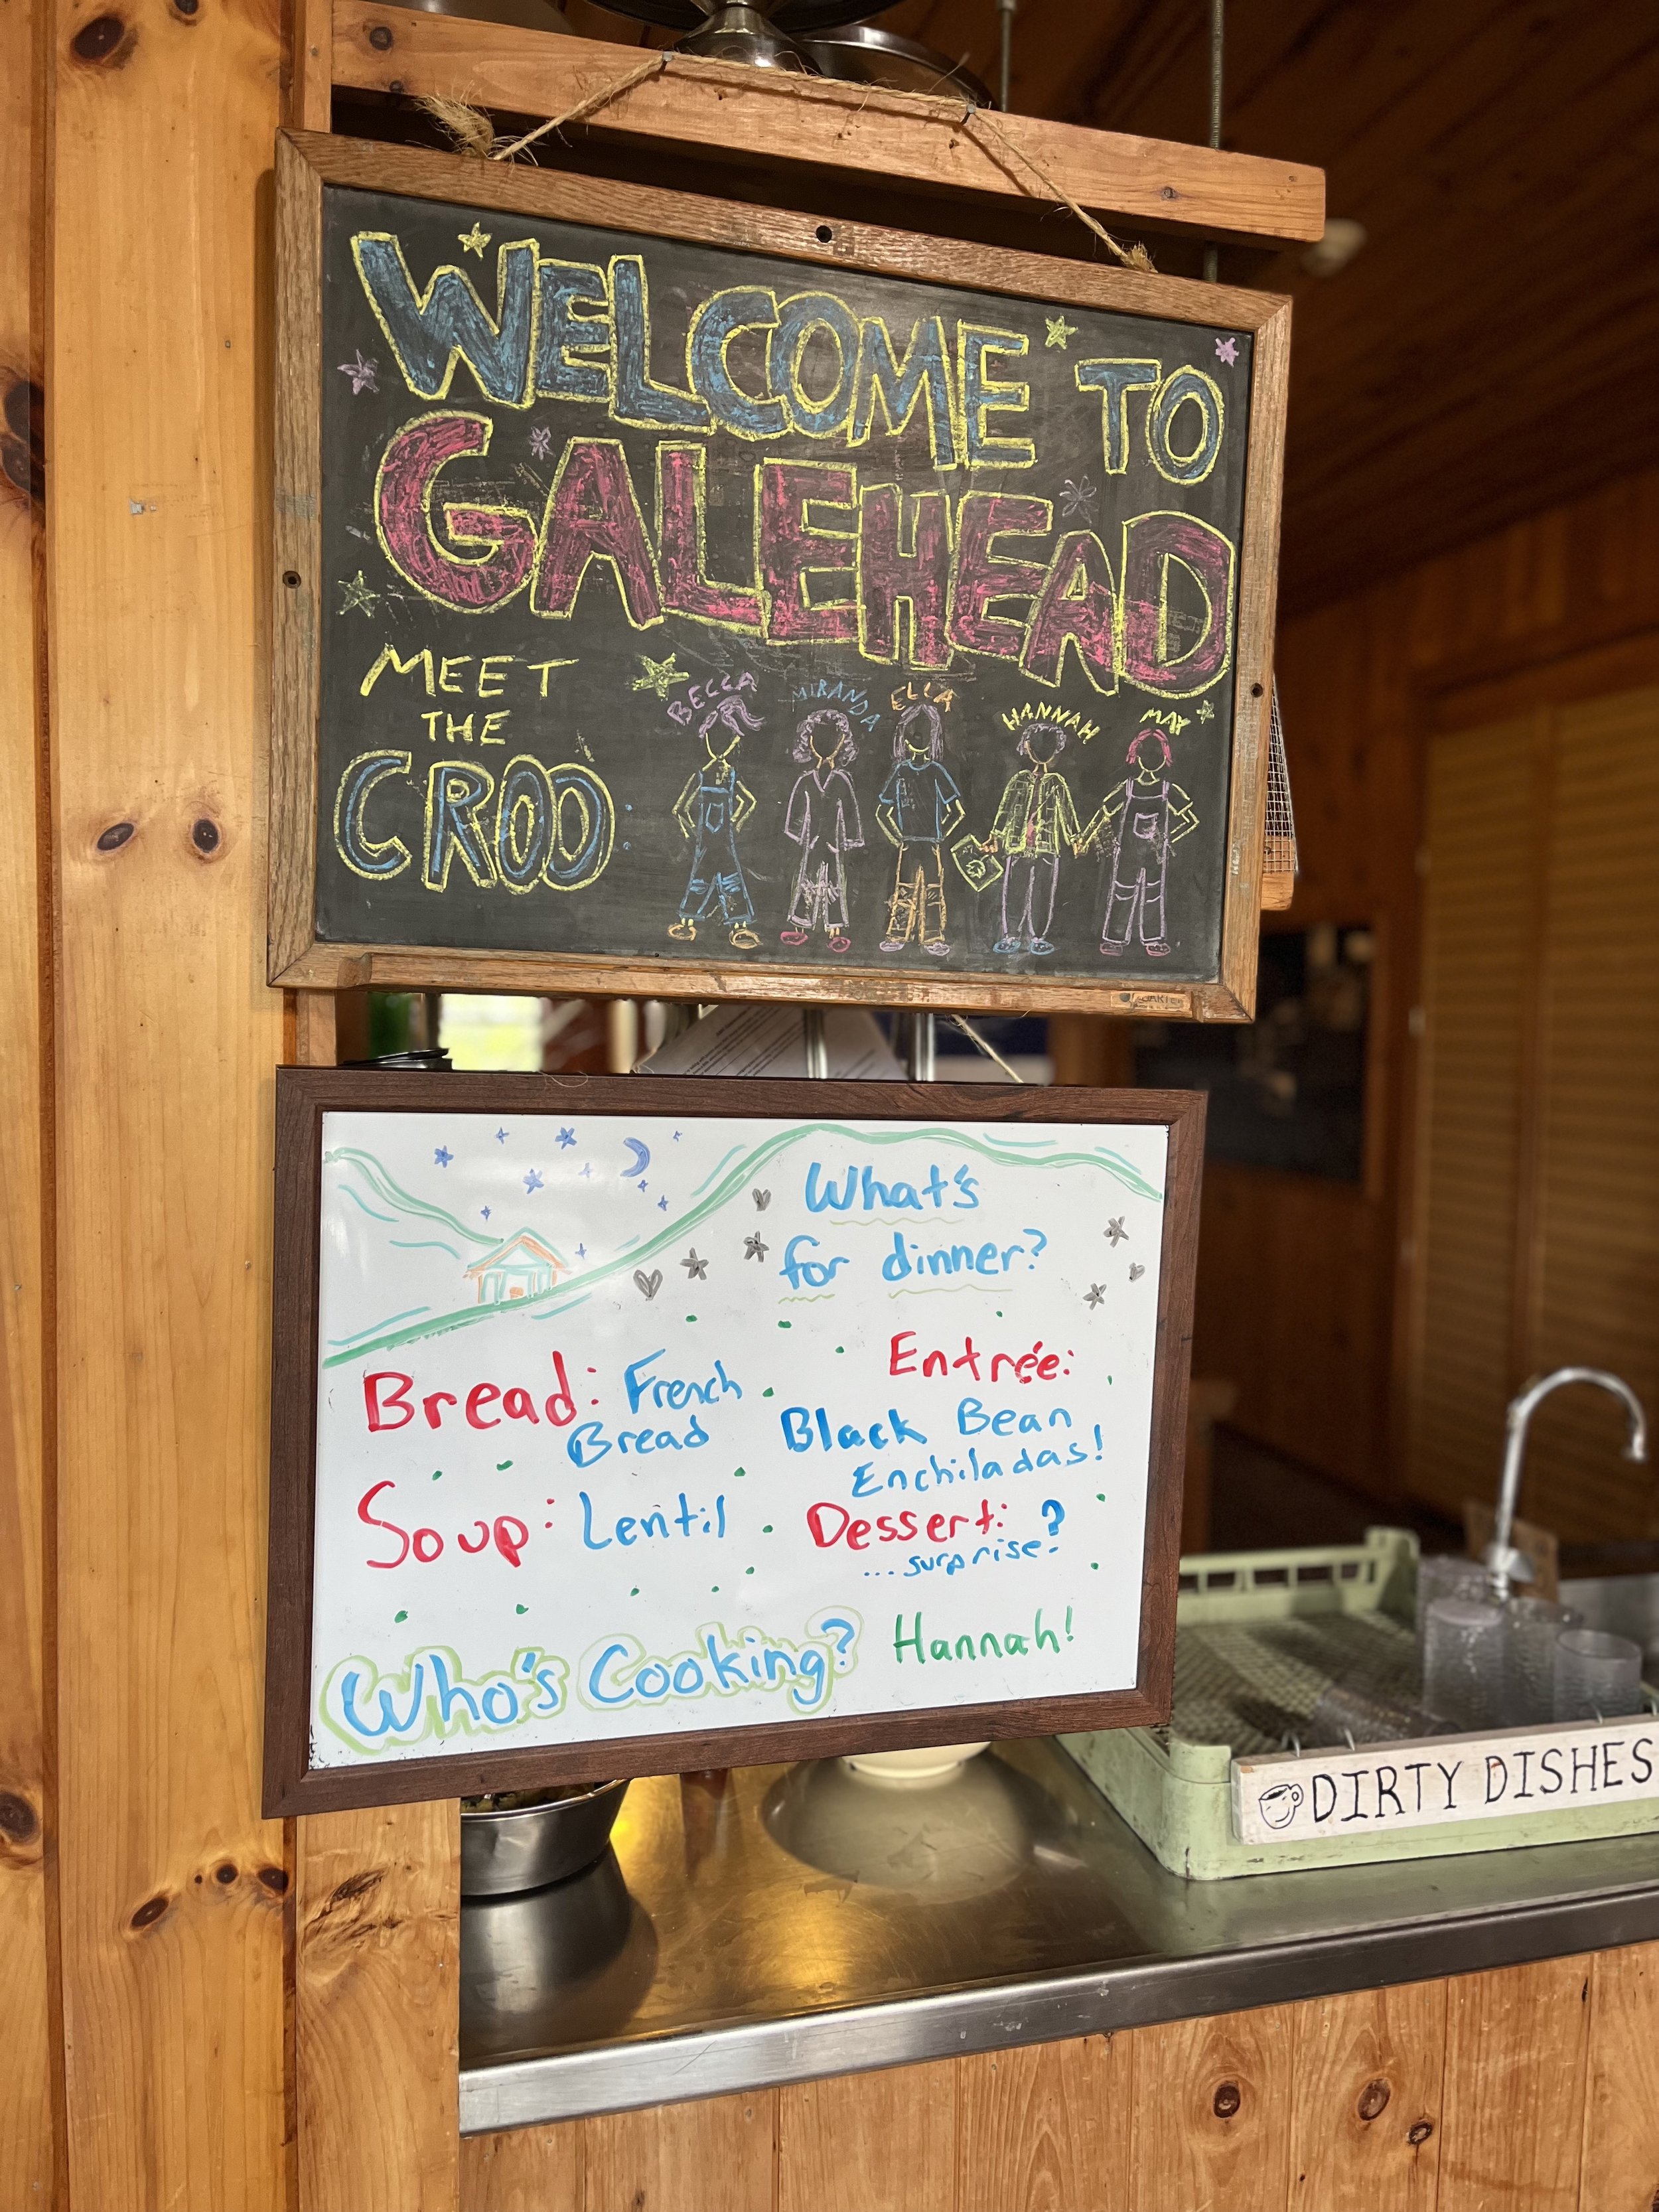 WELCOME TO
GALEHEAD
MEET
THE
CROO
BECCA
MIRANDA
ELLA
HANNAH
MAY
What's
for dinner?
Bread: French
Bread
Soup: Lentil
Entrée:
Black Bean
Enchiladas!
Dessert: ?
...surprise?
Who's Cooking? Hannah!
DIRTY DISHES